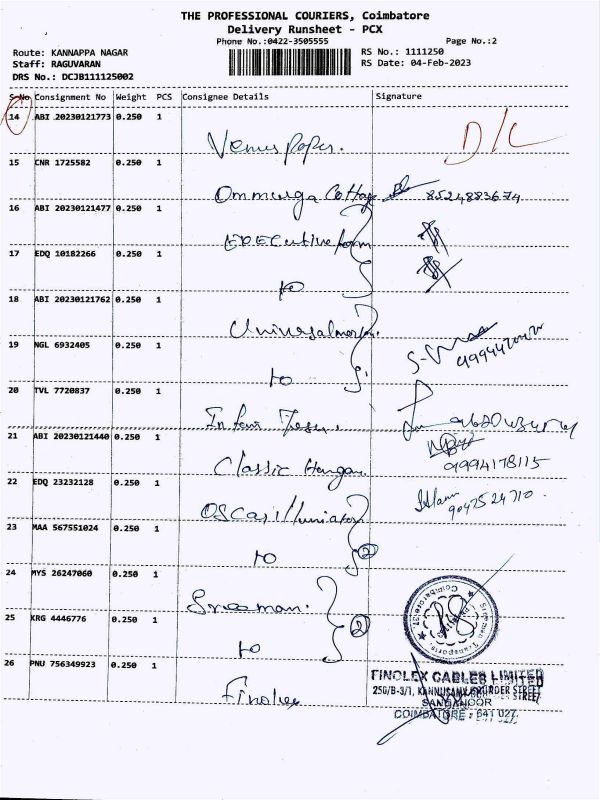 THE PROFESSIONAL COURIERS, Coimbatore
Delivery Runsheet - PCX
Phone No.:0422-3505555
Page No.:2
Route: KANNAPPA NAGAR
RS No.: 1111250
Staff: RAGUVARAN
RS Date: 04-Feb-2023
DRS No.: DCJB111125002
S No Consignment No Weight PCS Consignee Details Signature
14 ABI 20230121773 0.250 1
Venus paper. D/L
15 CNR 1725582 0.250 1
Ommuruga Cottage 8524883674
16 ABI 20230121477 0.250 1
17 EDQ 10182266 0.250 1
to
18 ABI 20230121762 0.250 1
19 NGL 6932405 0.250 1
to
20 TVL 7720837 0.250 1
21 ABI 20230121440 0.250 1
Classic 9994178115
22 EDQ 23232128 0.250 1
9047524710
23 MAA 567551024 0.250 1
to 2
24 MYS 26247060 0.250 1
25 KRG 4446776 0.250 1
to 2
26 PNU 756349923 0.250 1
Finolex
FINOLEX CABLES LIMITED
250/B-3/1, KANNUSAMY GOUNDER STREET
SANGANOOR
COIMBATORE - 641 027.